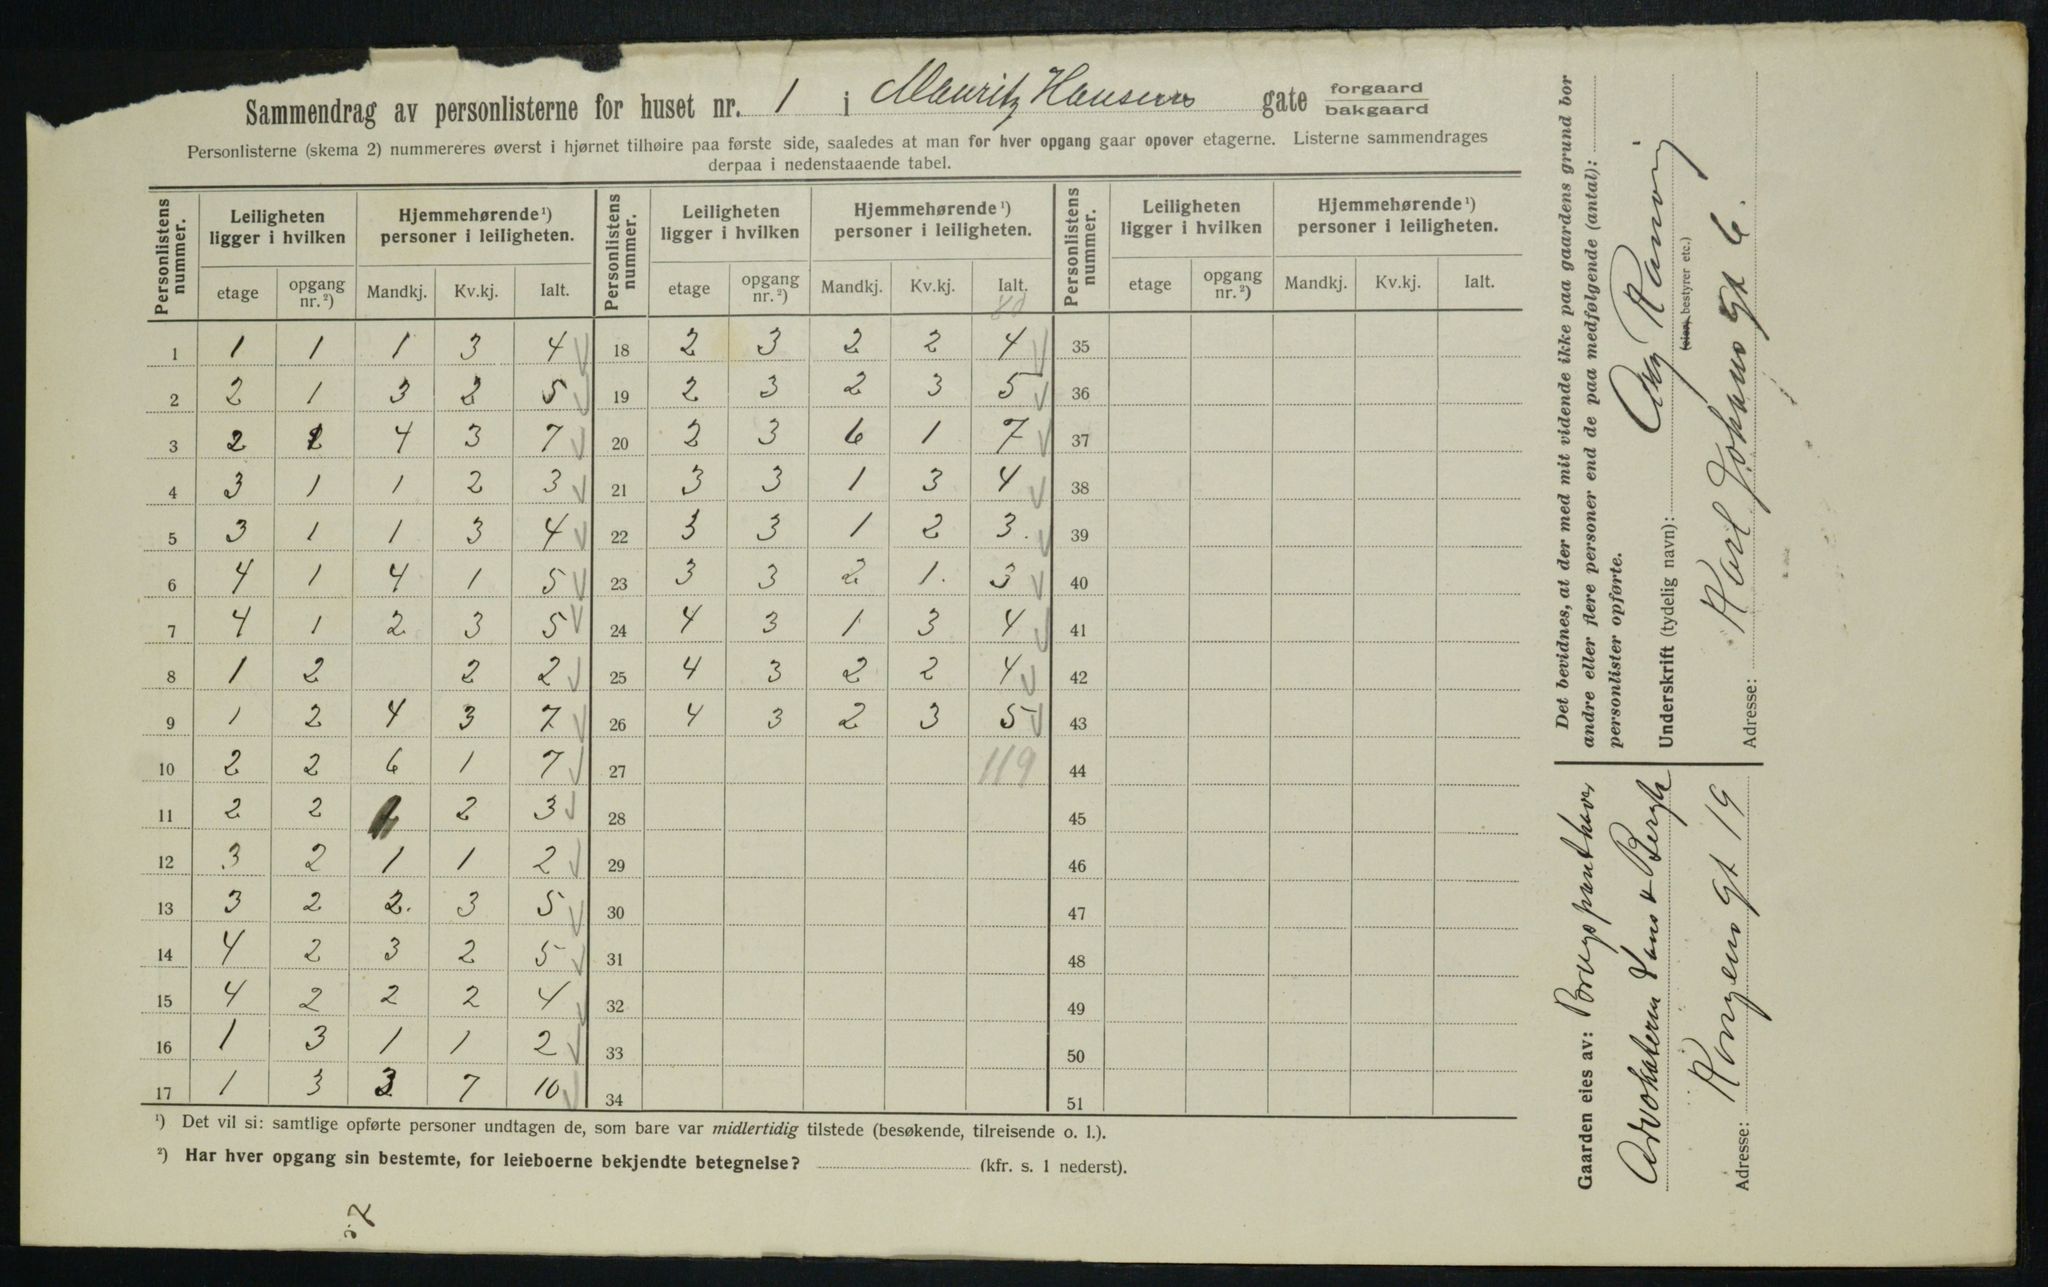 Sammendrag av personlisterne for huset nr. 1 i Mauritz Hansens gate forgaard bakgaard
Personlisterne (skema 2) nummereres øverst i hjørnet tilhøire paa første side, saaledes at man for hver opgang gaar opover etagerne. Listerne sammendrages
derpaa i nedenstaaende tabel.
Personlistens nummer. Leiligheten ligger i hvilken Hjemmehørende ¹) personer i leiligheten. Personlistens nummer. Leiligheten ligger i hvilken Hjemmehørende ¹) personer i leiligheten. Personlistens nummer. Leiligheten ligger i hvilken Hjemmehørende ¹) personer i leiligheten.
etage opgang nr. ²) Mandkj. Kv.kj. Ialt. etage opgang nr. ²) Mandkj. Kv.kj. Ialt. etage opgang nr. ²) Mandkj. Kv.kj. Ialt.
80
1 1 1 1 3 4 18 2 3 2 2 4 35
2 2 1 3 2 5 19 2 3 2 3 5 36
3 2 1 4 3 7 20 2 3 6 1 7 37
4 3 1 1 2 3 21 3 3 1 3 4 38
5 3 1 1 3 4 22 3 3 1 2 3. 39
6 4 1 4 1 5 23 3 3 2 1. 3 40
7 4 1 2 3 5 24 4 3 1 3 4 41
8 1 2 2 2 25 4 3 2 2 4 42
9 1 2 4 3 7 26 4 3 2 3 5 43
10 2 2 6 1 7 27 119 44
11 2 2 1 2 3 28 45
12 3 2 1 1 2 29 46
13 3 2 2. 3 5 30 47
14 4 2 3 2 5 31 48
15 4 2 2 2 4 32 49
16 1 3 1 1 2 33 50
17 1 3 3 7 10 34 51
¹) Det vil si: samtlige opførte personer undtagen de, som bare var midlertidig tilstede (besøkende, tilreisende o. l.).
²) Har hver opgang sin bestemte, for leieboerne bekjendte betegnelse? (kfr. s. 1 nederst).
Det bevidnes, at der med mit vidende ikke paa gaardens grund bor
andre eller flere personer end de paa medfølgende (antal):
personlister opførte.
Underskrift (tydelig navn):
(eier, bestyrer etc.)
Adresse: Karl Johans gt 6.
Gaarden eies av: Brugspanthaver
Advokaterne
Adresse: Kongens gt 19